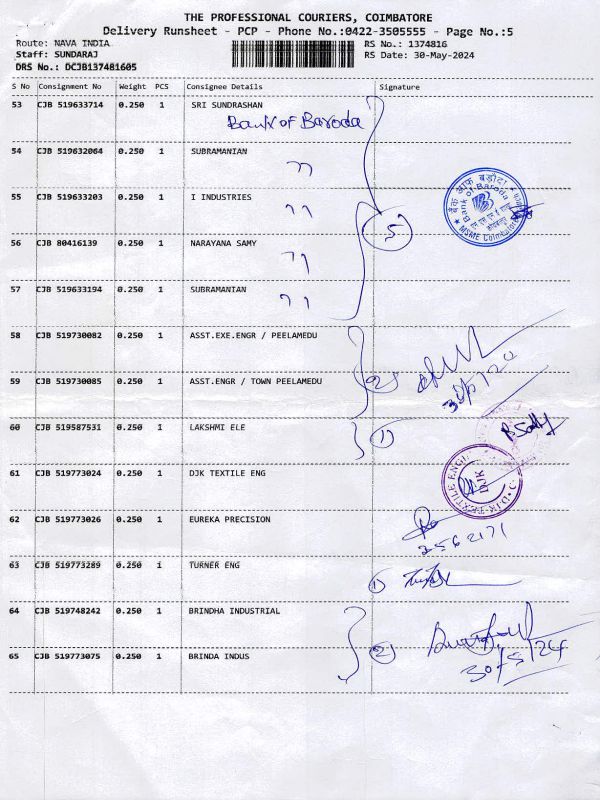 THE PROFESSIONAL COURIERS, COIMBATORE
Delivery Runsheet - PCP - Phone No.:0422-3505555 - Page No.:5
Route: NAVA INDIA
RS No.: 1374816
Staff: SUNDARAJ
RS Date: 30-May-2024
DRS No.: DCJB137481605
S No Consignment No Weight PCS Consignee Details Signature
53 CJB 519633714 0.250 1 SRI SUNDRASHAN
Bank of Baroda
54 CJB 519632064 0.250 1 SUBRAMANIAN
55 CJB 519633203 0.250 1 I INDUSTRIES
5
बैंक ऑफ बड़ौदा
Bank of Baroda
MSME Coimbatore
56 CJB 80416139 0.250 1 NARAYANA SAMY
57 CJB 519633194 0.250 1 SUBRAMANIAN
58 CJB 519730082 0.250 1 ASST.EXE.ENGR / PEELAMEDU
59 CJB 519730085 0.250 1 ASST.ENGR / TOWN PEELAMEDU
2
60 CJB 519587531 0.250 1 LAKSHMI ELE
1
61 CJB 519773024 0.250 1 DJK TEXTILE ENG
DJK TEXTILE ENGI
DJK
62 CJB 519773026 0.250 1 EUREKA PRECISION
2562171
63 CJB 519773289 0.250 1 TURNER ENG
1
64 CJB 519748242 0.250 1 BRINDHA INDUSTRIAL
65 CJB 519773075 0.250 1 BRINDA INDUS
2
30/5/24